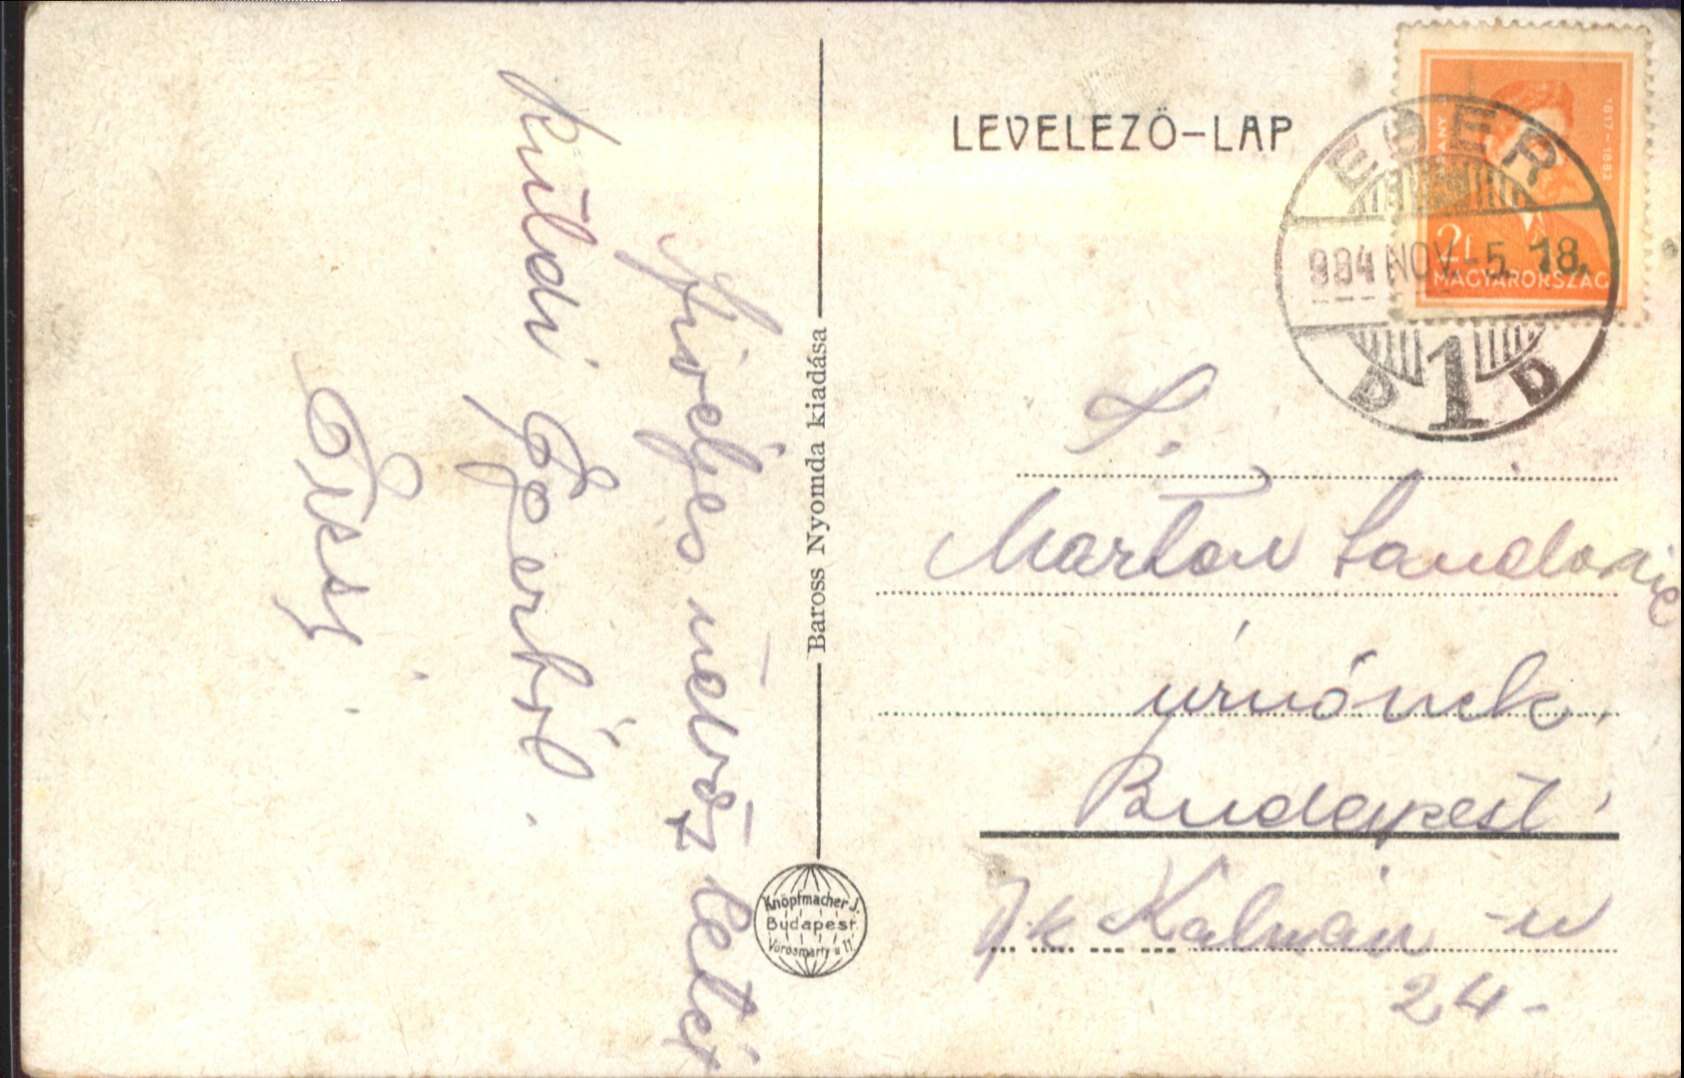 Szívélyes üdvözletét
küldi Egerből.
Őssy
Baross Nyomda kiadása
Knöpfmacher J.
Budapest
Vörösmarty u 11
LEVELEZŐ-LAP
ARANY
1817-1882
2f
MAGYARORSZÁG
EGER
934 NOV.-5. 18.
D 1 D
T.
Marton Sandorné
úrnőnek.
Budapest
Kalman-u
24-